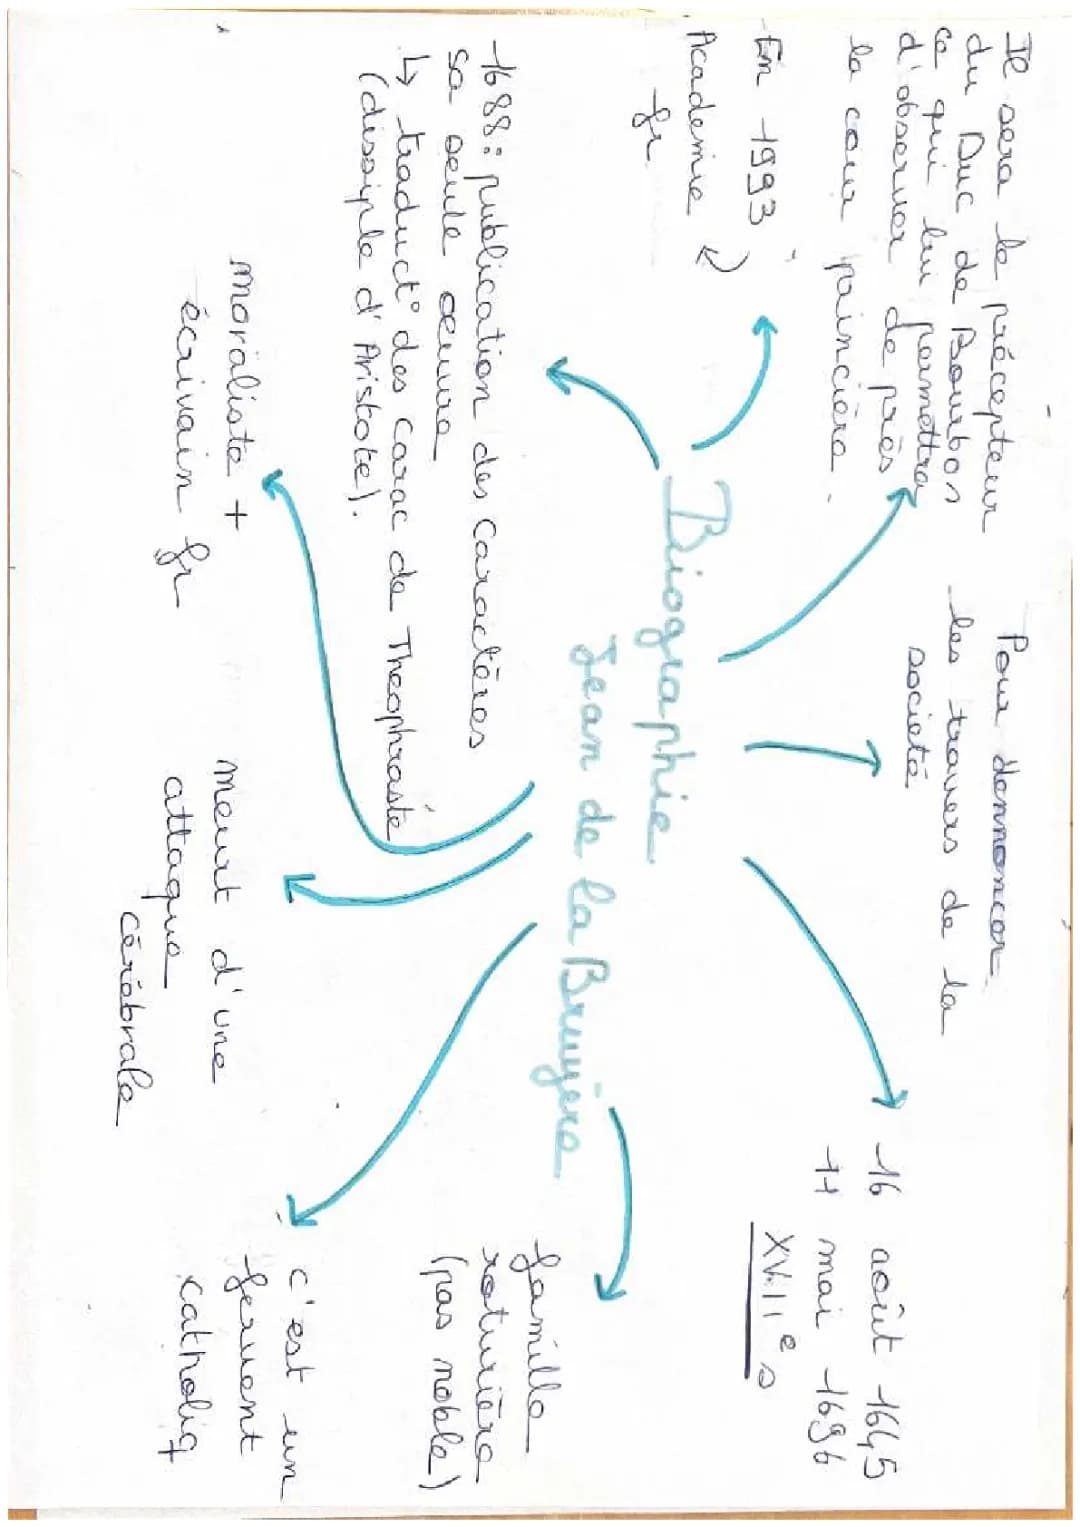 Il sera le précepteur
du Duc de Bourbon
ce qui lui permettra
d'observer de près
la cour paincière.
Pour dennoncer
les travers de la
societé
16 août 1645
11 mai 1696
XVIIe s
En 1993
Academie
fr
Biographie
Jean de la Bruyère
famille
roturière
(pas noble)
1688: publication des Caractères
sa seule oeuvre
↳ traduct° des carac de Theophraste
(dissiple d'Aristote).
moraliste +
écrivain fr
meurt d'une
attaque
cérébrale
c'est un
fervent
catholiq